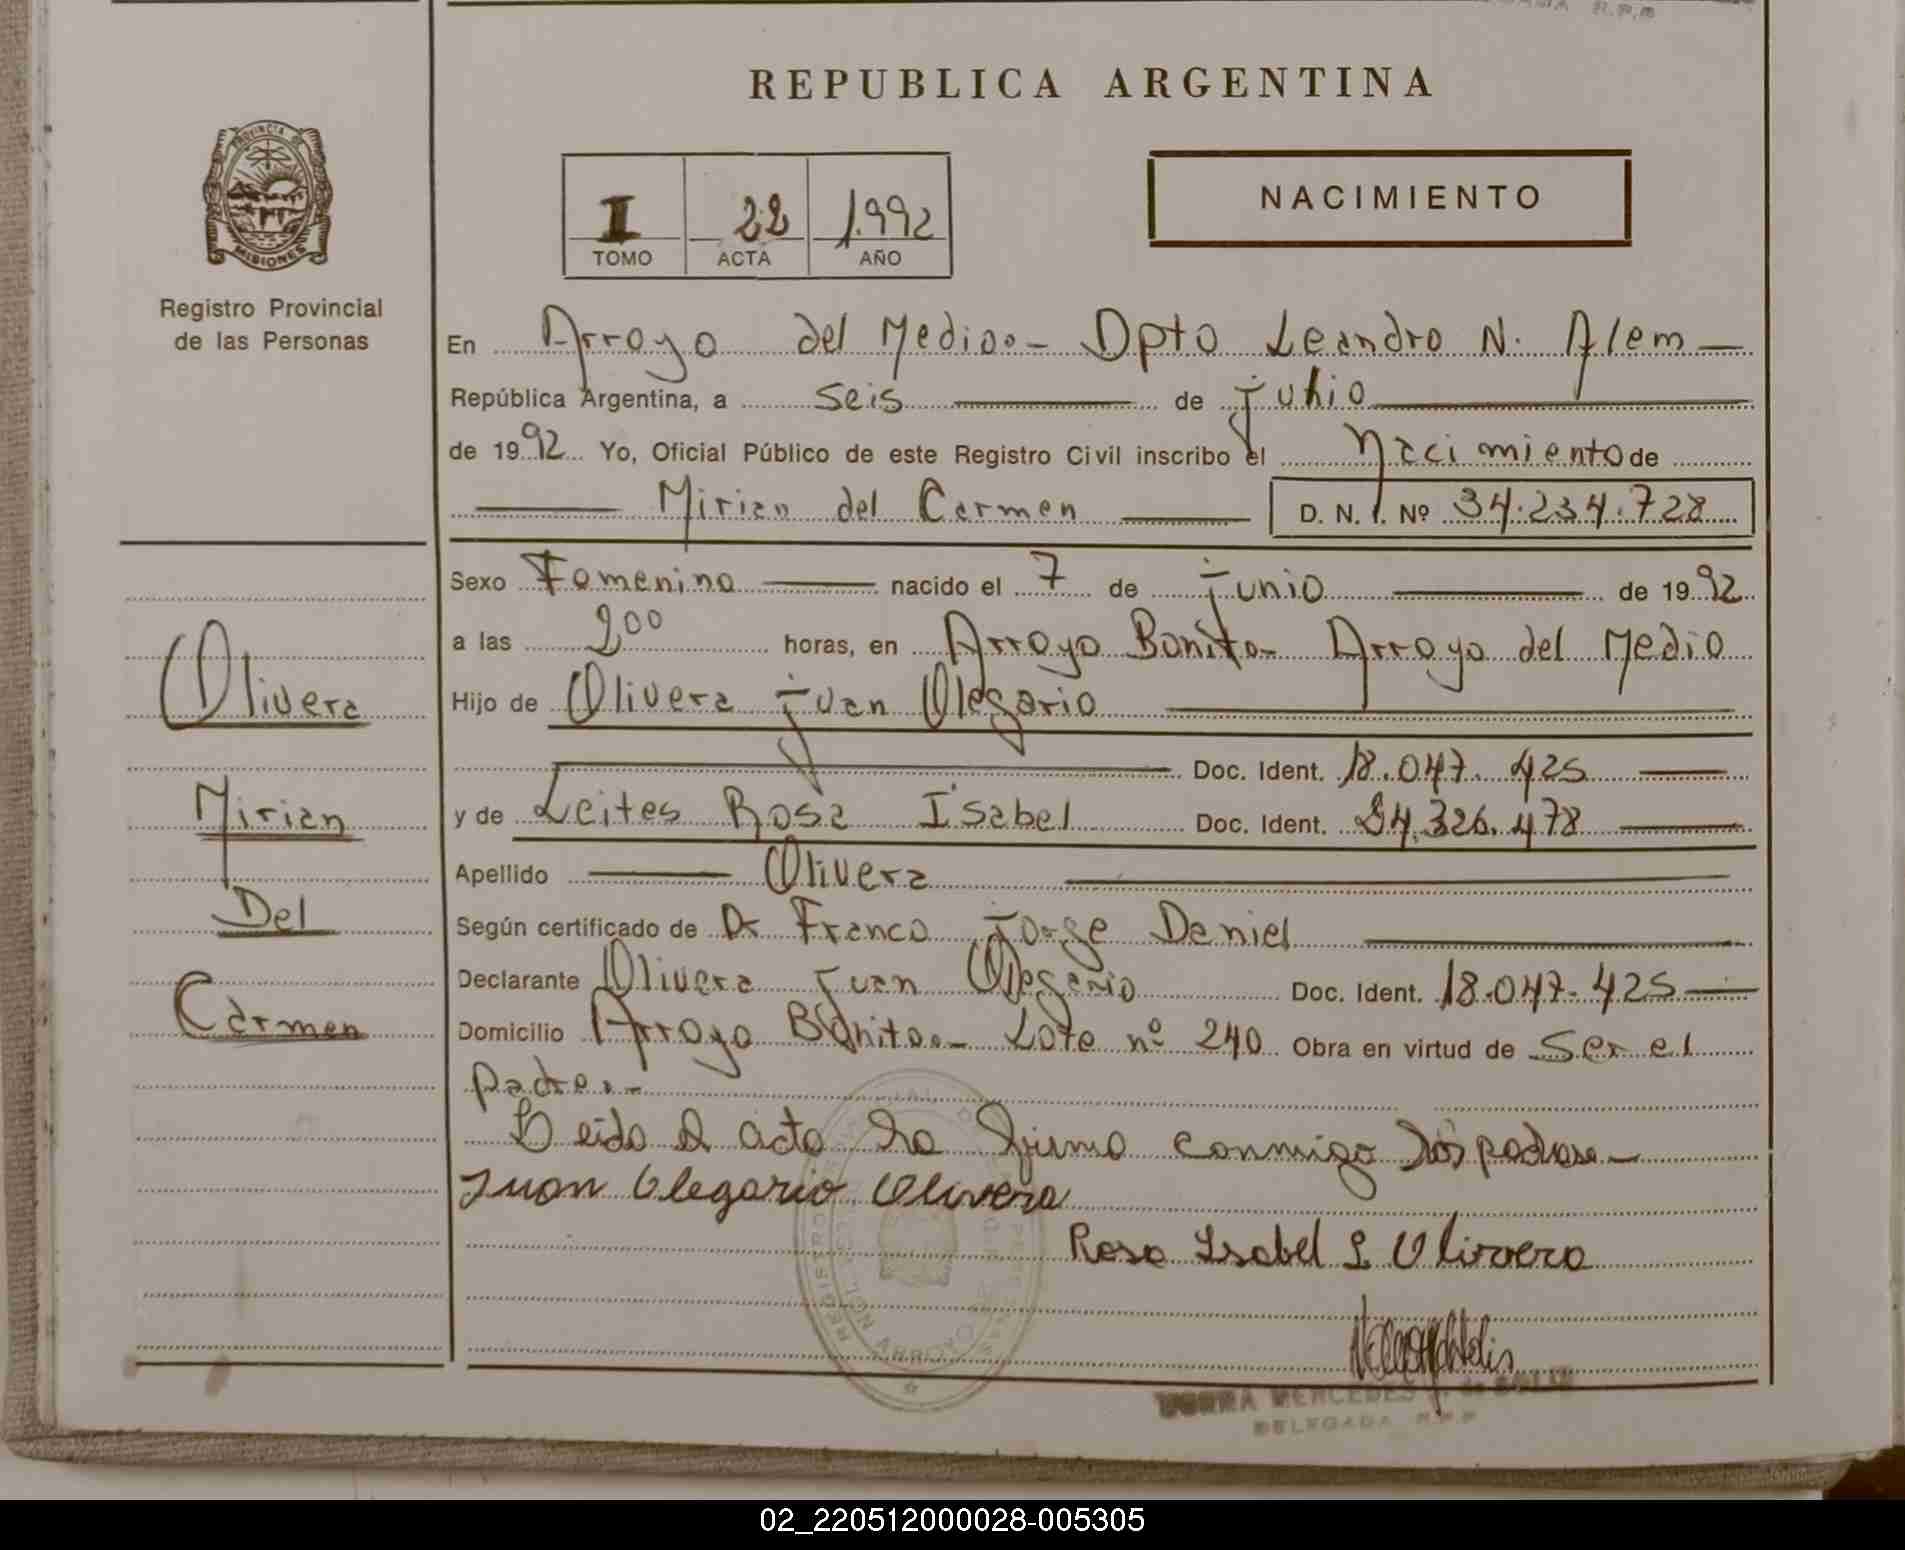 REPUBLICA ARGENTINA
PROVINCIA DE
MISIONES
Registro Provincial
de las Personas
I 22 1.992
TOMO ACTA AÑO
NACIMIENTO
En Arroyo del Medio.- Dpto Leandro N. Alem
República Argentina, a seis de julio
de 1992 Yo, Oficial Público de este Registro Civil inscribo el Nacimiento de
Mirian del Carmen D. N. I. Nº 34.234.728
Sexo Femenino nacido el 7 de junio de 1992
a las 2 00 horas, en Arroyo Bonito- Arroyo del Medio
Hijo de Olivera Juan Olegario
Doc. Ident. 18.047.425
y de Leites Rosa Isabel Doc. Ident. 24.326.478
Apellido Olivera
Según certificado de Dr Franco Jorge Daniel
Declarante Olivera Juan Olegario Doc. Ident. 18.047.425
Domicilio Arroyo Bonito.- Lote nº 240 Obra en virtud de Ser el
padre.-
Leida el acta la firma conmigo los padres.-
Juan Olegario Olivera
Rosa Isabel L Olivera
Olivera
Mirian
Del
Carmen
MERCEDES
DELEGADA R.P.P
02_220512000028-005305